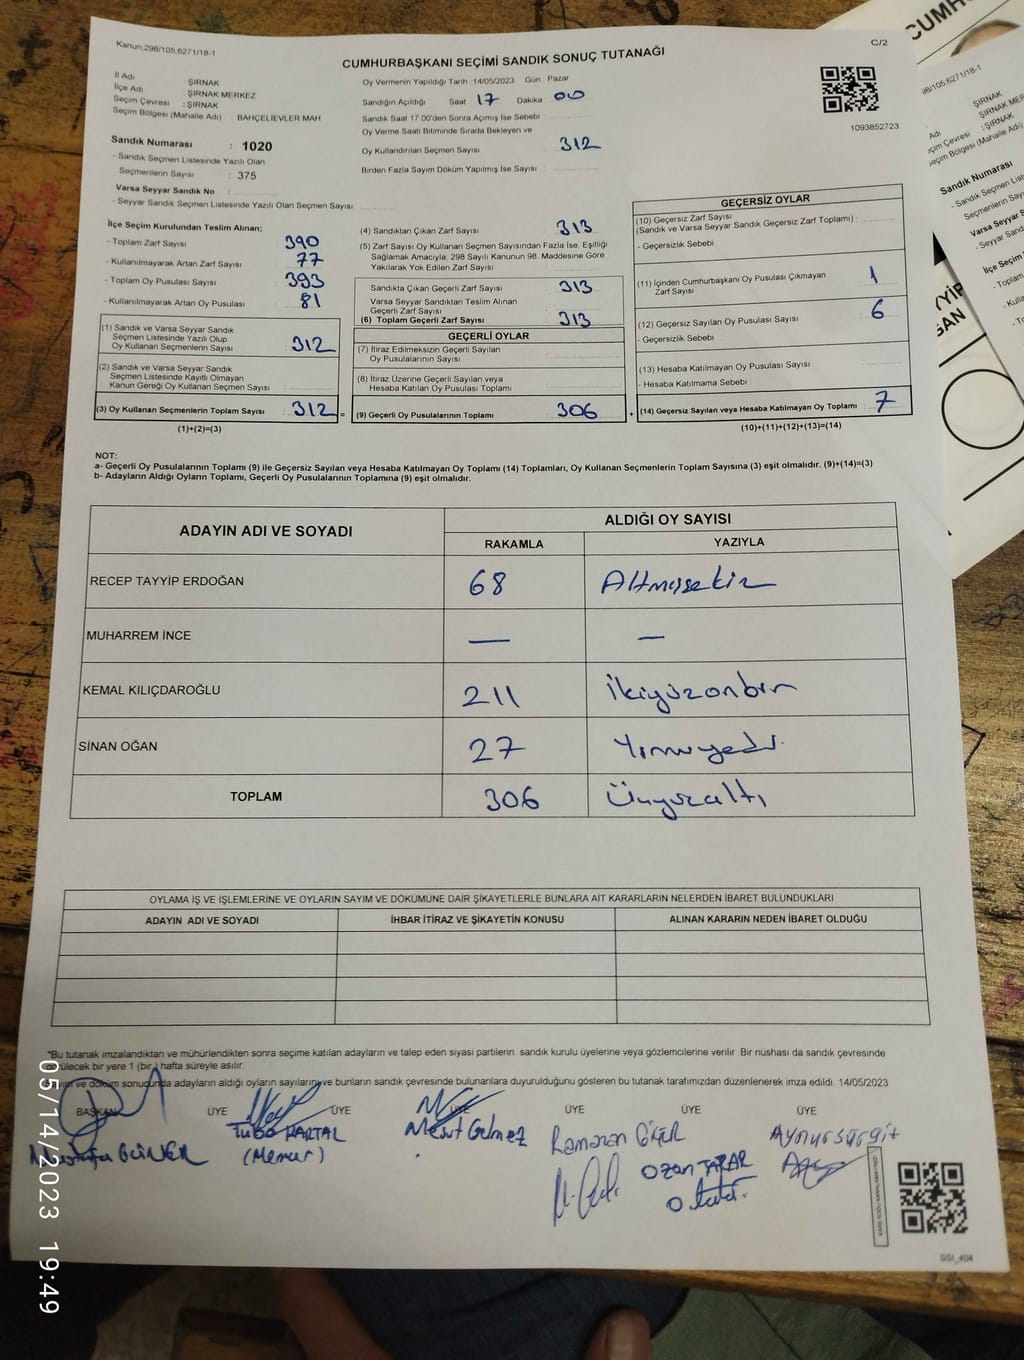 Kanun,298/105,6271/18-1
C/2
CUMHURBAŞKANI SEÇİMİ SANDIK SONUÇ TUTANAĞI
İl Adı ŞIRNAK
İlçe Adı ŞIRNAK MERKEZ
Seçim Çevresi : ŞIRNAK
Seçim Bölgesi (Mahalle Adı) BAHÇELİEVLER MAH
Sandık Numarası : 1020
- Sandık Seçmen Listesinde Yazılı Olan
Seçmenlerin Sayısı : 375
Varsa Seyyar Sandık No :
- Seyyar Sandık Seçmen Listesinde Yazılı Olan Seçmen Sayısı
Oy Vermenin Yapıldığı Tarih :14/05/2023 Gün Pazar
Sandığın Açıldığı Saat 17 Dakika 00
Sandık Saat 17.00'den Sonra Açılmış İse Sebebi
Oy Verme Saati Bitiminde Sırada Bekleyen ve
Oy Kullandırılan Seçmen Sayısı : 312
Birden Fazla Sayım Döküm Yapılmış İse Sayısı
1093852723
İlçe Seçim Kurulundan Teslim Alınan;
- Toplam Zarf Sayısı : 390
- Kullanılmayarak Artan Zarf Sayısı : 77
- Toplam Oy Pusulası Sayısı : 393
- Kullanılmayarak Artan Oy Pusulası : 81
(1) Sandık ve Varsa Seyyar Sandık
Seçmen Listesinde Yazılı Olup
Oy Kullanan Seçmenlerin Sayısı : 312
(2) Sandık ve Varsa Seyyar Sandık
Seçmen Listesinde Kayıtlı Olmayan
Kanun Gereği Oy Kullanan Seçmen Sayısı :
(3) Oy Kullanan Seçmenlerin Toplam Sayısı : 312 =
(1)+(2)=(3)
(4) Sandıktan Çıkan Zarf Sayısı : 313
(5) Zarf Sayısı Oy Kullanan Seçmen Sayısından Fazla İse, Eşitliği
Sağlamak Amacıyla; 298 Sayılı Kanunun 98. Maddesine Göre
Yakılarak Yok Edilen Zarf Sayısı :
Sandıkta Çıkan Geçerli Zarf Sayısı : 313
Varsa Seyyar Sandıktan Teslim Alınan
Geçerli Zarf Sayısı :
(6) Toplam Geçerli Zarf Sayısı : 313
GEÇERLİ OYLAR
(7) İtiraz Edilmeksizin Geçerli Sayılan
Oy Pusulalarının Sayısı :
(8) İtiraz Üzerine Geçerli Sayılan veya
Hesaba Katılan Oy Pusulası Toplamı :
(9) Geçerli Oy Pusulalarının Toplamı : 306 +
GEÇERSİZ OYLAR
(10) Geçersiz Zarf Sayısı
(Sandık ve Varsa Seyyar Sandık Geçersiz Zarf Toplamı) :
- Geçersizlik Sebebi :
(11) İçinden Cumhurbaşkanı Oy Pusulası Çıkmayan
Zarf Sayısı : 1
(12) Geçersiz Sayılan Oy Pusulası Sayısı : 6
- Geçersizlik Sebebi :
(13) Hesaba Katılmayan Oy Pusulası Sayısı :
- Hesaba Katılmama Sebebi :
(14) Geçersiz Sayılan veya Hesaba Katılmayan Oy Toplamı : 7
(10)+(11)+(12)+(13)=(14)
NOT:
a- Geçerli Oy Pusulalarının Toplamı (9) ile Geçersiz Sayılan veya Hesaba Katılmayan Oy Toplamı (14) Toplamları, Oy Kullanan Seçmenlerin Toplam Sayısına (3) eşit olmalıdır. (9)+(14)=(3)
b- Adayların Aldığı Oyların Toplamı, Geçerli Oy Pusulalarının Toplamına (9) eşit olmalıdır.
ADAYIN ADI VE SOYADI
ALDIĞI OY SAYISI
RAKAMLA YAZIYLA
RECEP TAYYİP ERDOĞAN 68 Altmışsekiz
MUHARREM İNCE — —
KEMAL KILIÇDAROĞLU 211 İkiyüzonbir
SİNAN OĞAN 27 Yirmiyedi
TOPLAM 306 Üçyüzaltı
OYLAMA İŞ VE İŞLEMLERİNE VE OYLARIN SAYIM VE DÖKÜMÜNE DAİR ŞİKAYETLERLE BUNLARA AİT KARARLARIN NELERDEN İBARET BULUNDUKLARI
ADAYIN ADI VE SOYADI İHBAR İTİRAZ VE ŞİKAYETİN KONUSU ALINAN KARARIN NEDEN İBARET OLDUĞU
*Bu tutanak imzalandıktan ve mühürlendikten sonra seçime katılan adayların ve talep eden siyasi partilerin sandık kurulu üyelerine veya gözlemcilerine verilir. Bir nushası da sandık çevresinde
görülecek bir yere 1 (bir) hafta süreyle asılır.
ve döküm sonucunda adayların aldığı oyların sayılarını ve bunların sandık çevresinde bulunanlara duyurulduğunu gösteren bu tutanak tarafımızdan düzenlenerek imza edildi. 14/05/2023
BAŞKAN ÜYE ÜYE ÜYE ÜYE ÜYE ÜYE
Mustafa GÜNER
Tuba KARTAL
(Memur)
Mesut Gelmez
Ramazan
Ozan TATAR
O.
Aynur sargıt
SSI_404
05/14/2023 19:49
CUMH
98/105,6271/18-1
Adı ŞIRNAK
ŞIRNAK MER
çim Çevresi : ŞIRNAK
Sandık Numarası
- Sandık Seçmen List
Seçmenlerin Sayı
Varsa Seyya
- Seyyar San
İlçe Seçim
- Topla
- Kulla
YYİP
ĞAN